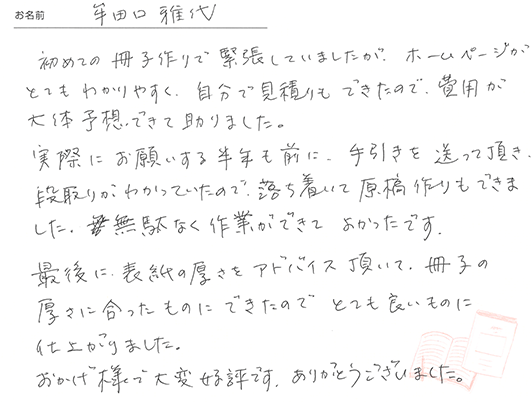 お名前 牟田口 雅代
初めての冊子作りで緊張していましたが、ホームページが
とてもわかりやすく、自分で見積りもできたので、費用が
大体予想できて助りました。
実際にお願いする半年も前に、手引きを送って頂き、
段取りがわかっていたので、落ち着いて原稿作りもできま
した。無駄なく作業ができてよかったです。
最後に、表紙の厚さをアドバイス頂いて、冊子の
厚さに合ったものにできたのでとても良いものに
仕上がりました。
おかげ様で大変好評です。ありがとうございました。